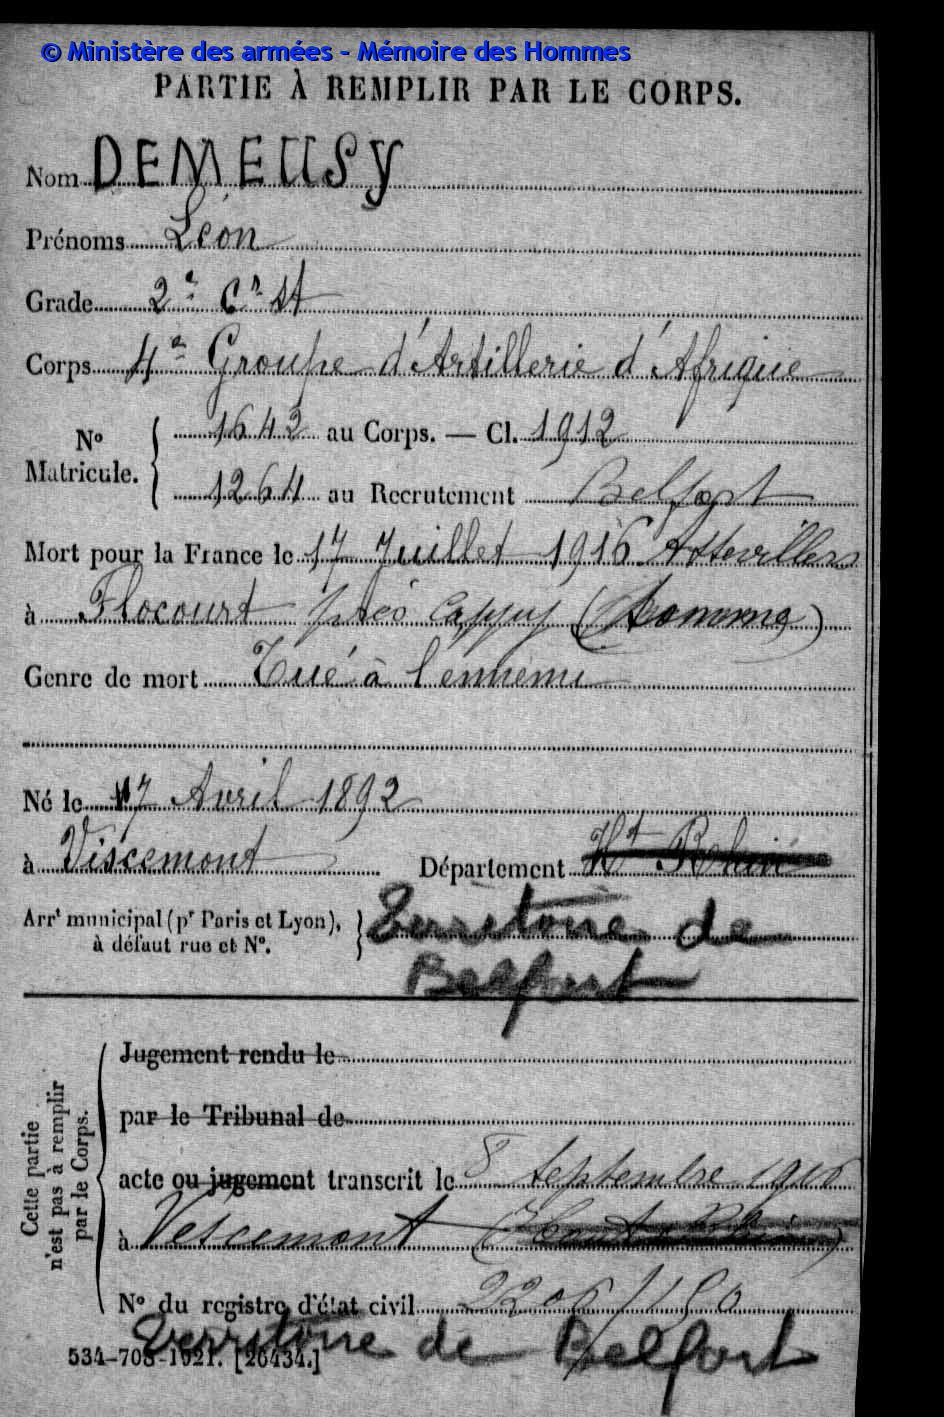 © Ministère des armées - Mémoire des Hommes
PARTIE À REMPLIR PAR LE CORPS.
Nom DEMEUSY
Prénoms Léon
Grade 2e Cr st
Corps 4e Groupe d'Artillerie d'Afrique
No Matricule. { 1642 au Corps. — Cl. 1912
1264 au Recrutement Belfort
Mort pour la France le 17 Juillet 1916 Attevillers
à Flocourt près Cappy (Somme)
Genre de mort Tué à l'ennemi
Né le 17 Avril 1892
à Viscemont Département Ht Rhin
Arrt municipal (pr Paris et Lyon), à défaut rue et No. } Territoire de
Belfort
Cette partie n'est pas à remplir par le Corps.
Jugement rendu le
par le Tribunal de
acte ou jugement transcrit le 8 Septembre 1916
à Vescemont (Haut Rhin)
No du registre d'état civil 2206/150
Territoire de Belfort
534-708-1921. [26434.]